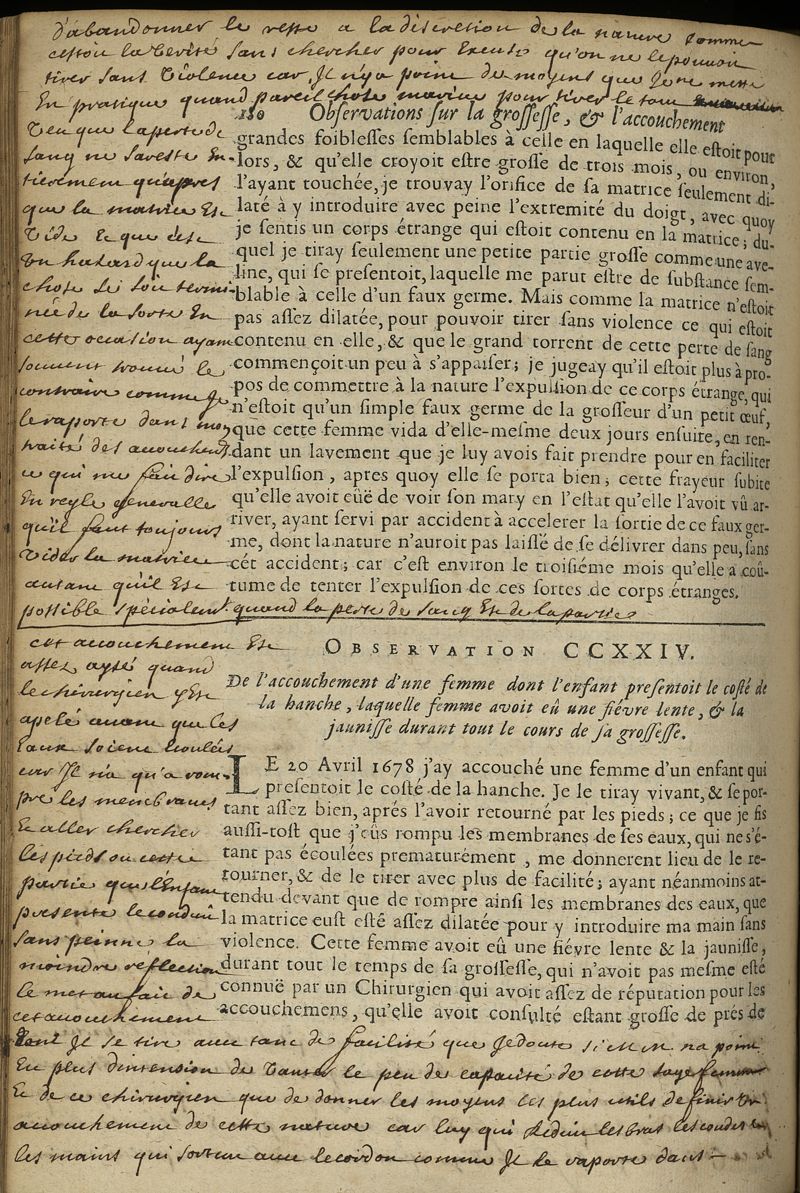 d'abandonner le reste a la discretion de la nature comme
cestoit la verité sans chercher pour excuse qu'on ne le pouvoit
tirer sans violence car Je n'y a point de moyens que Je ne mette
En pratique quand pareil chose marive pour tirer le tout
180 Observations sur la grossesse, & l'accouchement
grandes foiblesses semblables à celle en laquelle elle estoit pour
lors, & qu'elle croyoit estre grosse de trois mois, ou environ,
l'ayant touchée, je trouvay l'orifice de sa matrice seulement di-
laté à y introduire avec peine l'extremité du doigt, avec quoy
je sentis un corps étrange qui estoit contenu en la matrice; du-
quel je tiray seulement une petite partie grosse comme une ave-
line, qui se presentoit, laquelle me parut estre de substance sem-
blable à celle d'un faux germe. Mais comme la matrice n'estoit
pas assez dilatée, pour pouvoir tirer sans violence ce qui estoit
contenu en elle, & que le grand torrent de cette perte de sang
commençoit un peu à s'appaiser; je jugeay qu'il estoit plus à pro-
pos de commettre à la nature l'expulsion de ce corps étrange, qui
n'estoit qu'un simple faux germe de la grosseur d'un petit œuf,
que cette femme vida d'elle-mesme deux jours ensuite, en ren-
dant un lavement que je luy avois fait prendre pour en faciliter
l'expulsion, apres quoy elle se porta bien; cette frayeur subite
qu'elle avoit eûë de voir son mary en l'estat qu'elle l'avoit vû ar-
river, ayant servi par accident à accelerer la sortie de ce faux ger-
me, dont la nature n'auroit pas laissé de se délivrer dans peu, sans
cét accident; car c'est environ le troisiéme mois qu'elle a coû-
tume de tenter l'expulsion de ces sortes de corps étranges.
veu que la perte de
sang ne sareste En-
tierement qu'apres
que la matrice Est
vide Et que c'est
un hasard que la
chose se soit termi-
née de la sorte En
cette occasion ayant
souvent trouvé le
contraire comme
le raporte dans mon
traité des accouchem
ce qui me fait dire
En regle generalle
qu'il faut toujours
vider la matrice
autant qu'il Est
possible specialem quand la perte de sang Est de la partie
OBSERVATION CCXXIV.
De l'accouchement d'une femme dont l'enfant presentoit le costé de
la hanche, laquelle femme avoit eû une fiévre lente, & la
jaunisse durant tout le cours de sa grossesse.
LE 20 Avril 1678 j'ay accouché une femme d'un enfant qui
presentoit le costé de la hanche. Je le tiray vivant, & se por-
tant assez bien, aprés l'avoir retourné par les pieds; ce que je fis
aussi-tost que j'eûs rompu les membranes de ses eaux, qui ne s'é-
tant pas écoulées prematurément, me donnerent lieu de le re-
tourner, & de le tirer avec plus de facilité; ayant néanmoins at-
tendu devant que de rompre ainsi les membranes des eaux, que
la matrice eust esté assez dilatée pour y introduire ma main sans
violence. Cette femme avoit eû une fiévre lente & la jaunisse,
durant tout le temps de sa grossesse, qui n'avoit pas mesme esté
connuë par un Chirurgien qui avoit assez de réputation pour les
accouchemens, qu'elle avoit consulté estant grosse de prés de
cet accouchement Est
assez aysé quand
le chirurgien y Est
apelé avant que les
eaux soient écoulées
car Il n'a qu'a rom-
pre les membranes
Et aller chercher
les pieds ou cette
partie que l'Enfant
presente le conduit
sans peinne la
moindre reflection
le met au fait de
cet accouchement
dont Je se tire avec tant de facilité que Je doute si on na point
Eu plus dintension de vanter le peu de capacité de cette sage femme
Et de ce chirurgien que de donner les moyens les plus utils de finir un
accouchement de cette nature car luy qui réduit les bras les coudes
les mains qui sortent avec le cordon comme Je le raporte dans